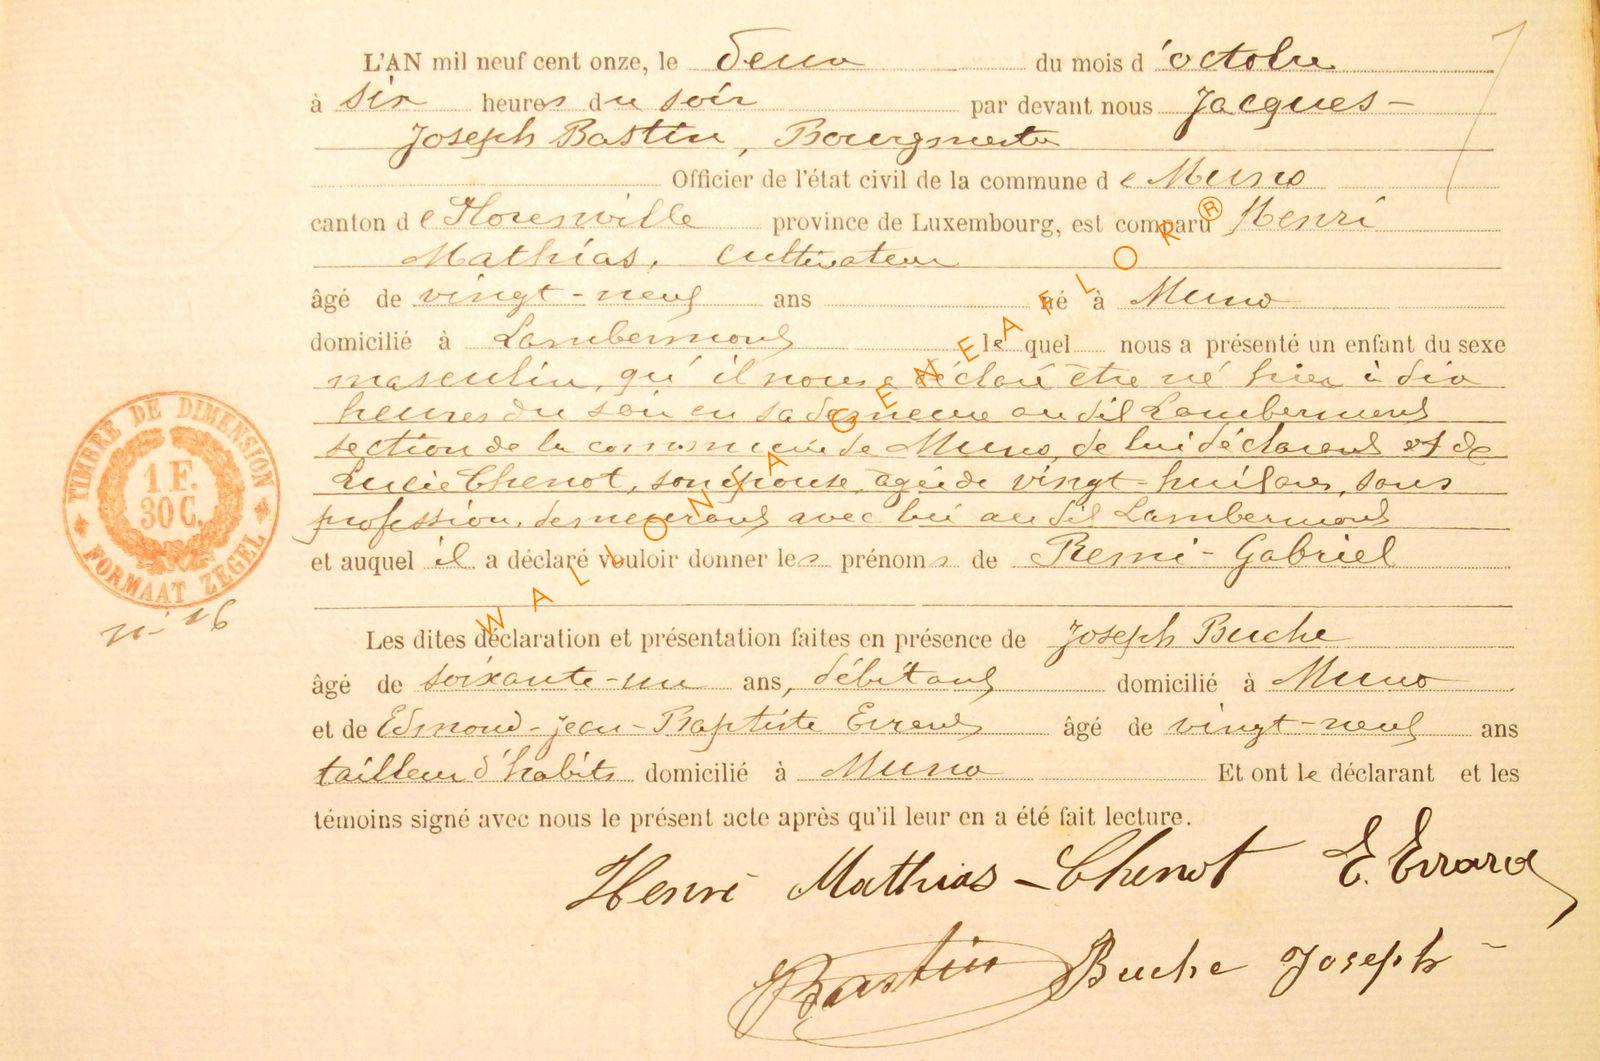 L'AN mil neuf cent onze, le deux du mois d'octobre
à six heures du soir par devant nous Jacques-
Joseph Bastin, Bourgmestre
Officier de l'état civil de la commune de Muno
canton de Florenville province de Luxembourg, est comparu Henri
Mathias, cultivateur
âgé de vingt-neuf ans né à Muno
domicilié à Lambermont lequel nous a présenté un enfant du sexe
masculin, qu'il nous a déclaré être né hier à dix
heures du soir en sa demeure au dit Lambermont
section de la commune de Muno, de lui déclarant et de
Lucie Chenot, son épouse, âgée de vingt-huit ans, sans
profession, demeurant avec lui au dit Lambermont
et auquel il a déclaré vouloir donner les prénoms de Remi-Gabriel
TIMBRE DE DIMENSION
1 F.
30 C.
FORMAAT ZEGEL
n° 16
Les dites déclaration et présentation faites en présence de Joseph Buche
âgé de soixante-un ans, débitant domicilié à Muno
et de Edmond-Jean-Baptiste Errard âgé de vingt-neuf ans
tailleur d'habits domicilié à Muno Et ont le déclarant et les
témoins signé avec nous le présent acte après qu'il leur en a été fait lecture.
Henri Mathias-Chenot E. Errard
Bastin Buche Joseph
WALLONIA GENEAFLOR®